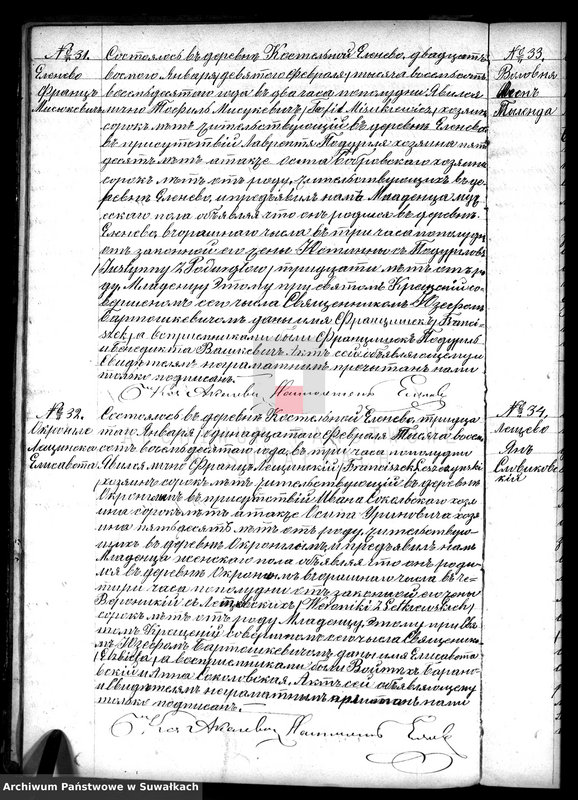 № 31.
Еленево
Францъ
Мисюкевичъ
Состоялось въ деревнѣ Костельной Еленево, двадцать
восьмого Января/девятого Февраля/тысяча восемьсотъ
восемьдесятаго года въ два часа пополудни. Явился
лично Теофиль Мисукевичъ /Teofil Misukiewicz/ хозяинъ
сорокъ лѣтъ жительствующій въ деревнѣ Еленево
въ присутствіи Лаврентія Подурля хозяина пять
десятъ лѣтъ а также Осипа Бобровскаго хозяина
сорокъ лѣтъ отъ роду, жительствующихъ въ де
ревнѣ Еленево, и предъявилъ намъ Младенца муж
ескаго пола объявляя что онъ родился въ деревнѣ
Еленево, вчорашняго числа въ три часа пополудни
отъ законной его жены Юстины съ Подурлевъ
/Justyny z Podurglow/ тридцати лѣтъ отъ ро
ду. Младенцу этому при святомъ Крещеніи со
вершеномъ сего числа Священникомъ Юзефомъ
Бартошкевичомъ даны имя Францишекъ /Franci-
szek/ а восприемниками были Францишекъ Подурль
и Бенедикта Вашкевичъ. Актъ сей объявляющему и
Свидѣтелямъ неграматнымъ прочитанъ нами
только подписанъ.
№ 32.
Окронгло
Лещинска
Елисавета
Состоялось въ деревнѣ Костельной Еленево, тридца
таго Января/одинадцатаго Февраля/Тысяча восем
сотъ восемьдесятаго года, въ три часа пополудни
Явился лично Францъ Лещинскій /Franciszek Leszczynski
/хозяинъ сорокъ лѣтъ жительствующій въ деревнѣ
Окронгломъ въ присутствіи Ивана Соколовскаго хозя
ина сорокъ лѣтъ а также Осипа Уриновича хозя
ина пятьдесятъ лѣтъ отъ роду, жительствую-
щихъ въ деревнѣ Окронгломъ и предъявилъ намъ
Младенца женскаго пола объявляя что онъ роди-
лся въ деревнѣ Окронгломъ вчорашняго числа въ че-
тыри часа пополудни отъ законной его жены
Вероникій съ Летковскихъ /Weroniki z Letkowskich/
сорокъ лѣтъ отъ роду Младенцу этому при Свя
томъ Крещеніи совершеномъ сего числа Священнико
мъ Юзефомъ Бартошкевичомъ даны имя Елисавета
/Elżbieta/ а восприемниками были Войтѣхъ Баранов
вскій и Анна Соколовская. Актъ сей объявляющему
и Свидѣтелямъ неграматнымъ прочитанъ нами
только подписанъ.
№ 33.
Воловня
Тыленда
№ 34.
Лещево
Янъ
Словиковс
кій
Archiwum Państwowe w Suwałkach